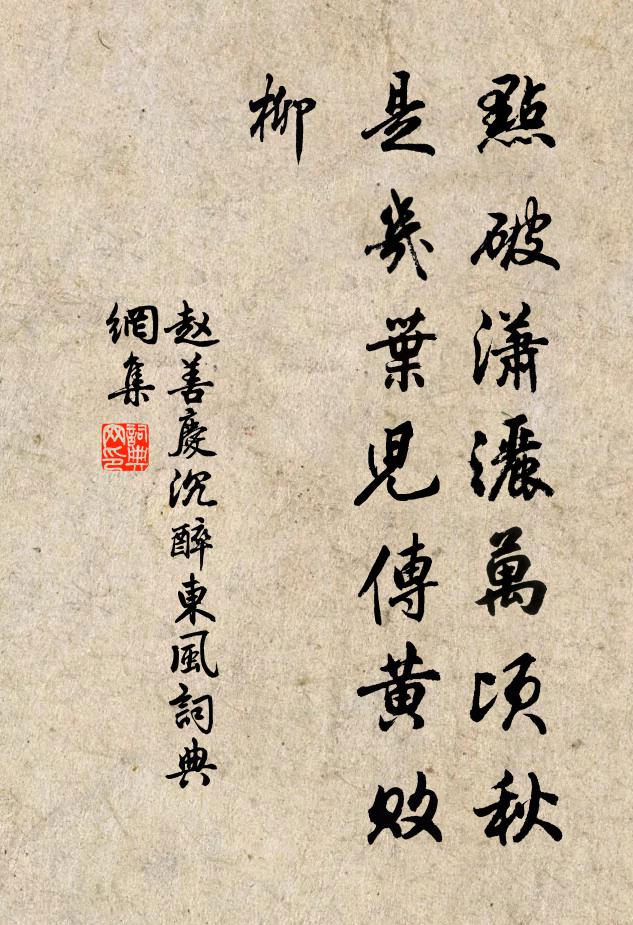 點破瀟灑萬頃秋
是幾葉兒傳黄敗
柳
赵善慶沉醉東風詞典
網集
詞典
网印